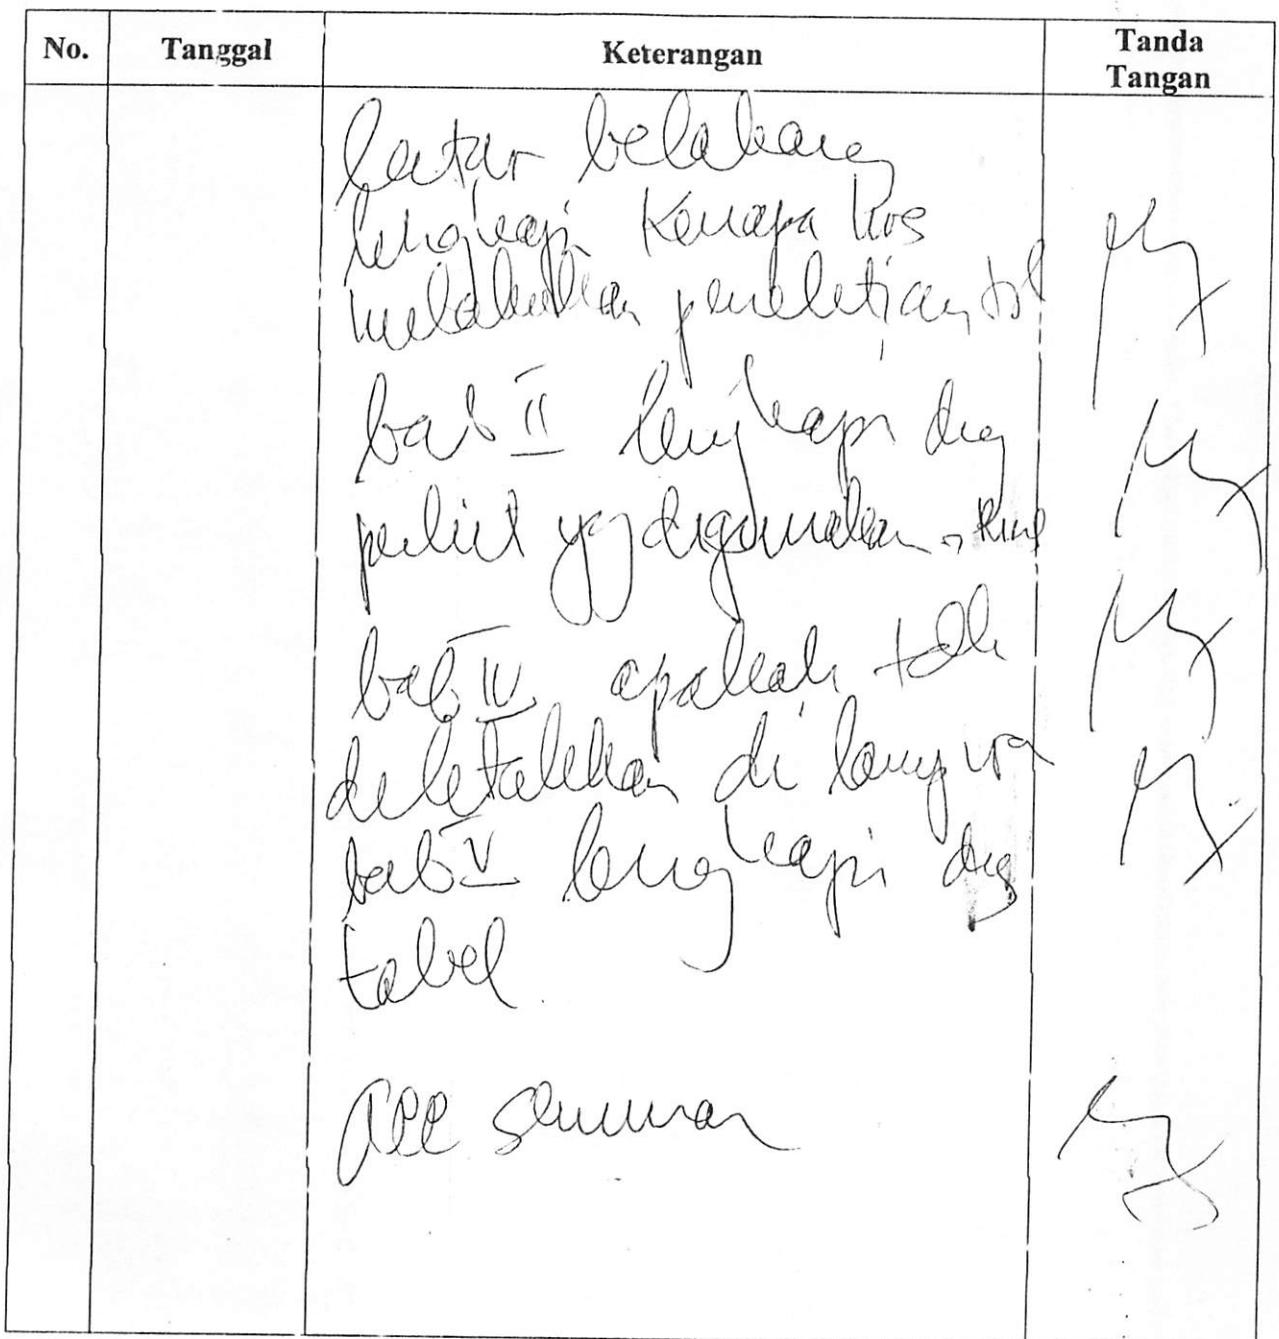 No. Tanggal Keterangan Tanda Tangan
latar belakang
lengkapi Kenapa hrs
melakukan penelitian tsb
bab II lengkapi dng
yg digunakan
bab IV apakah tdk
diletakkan di
bab V lengkapi dng
tabel
Acc seminar